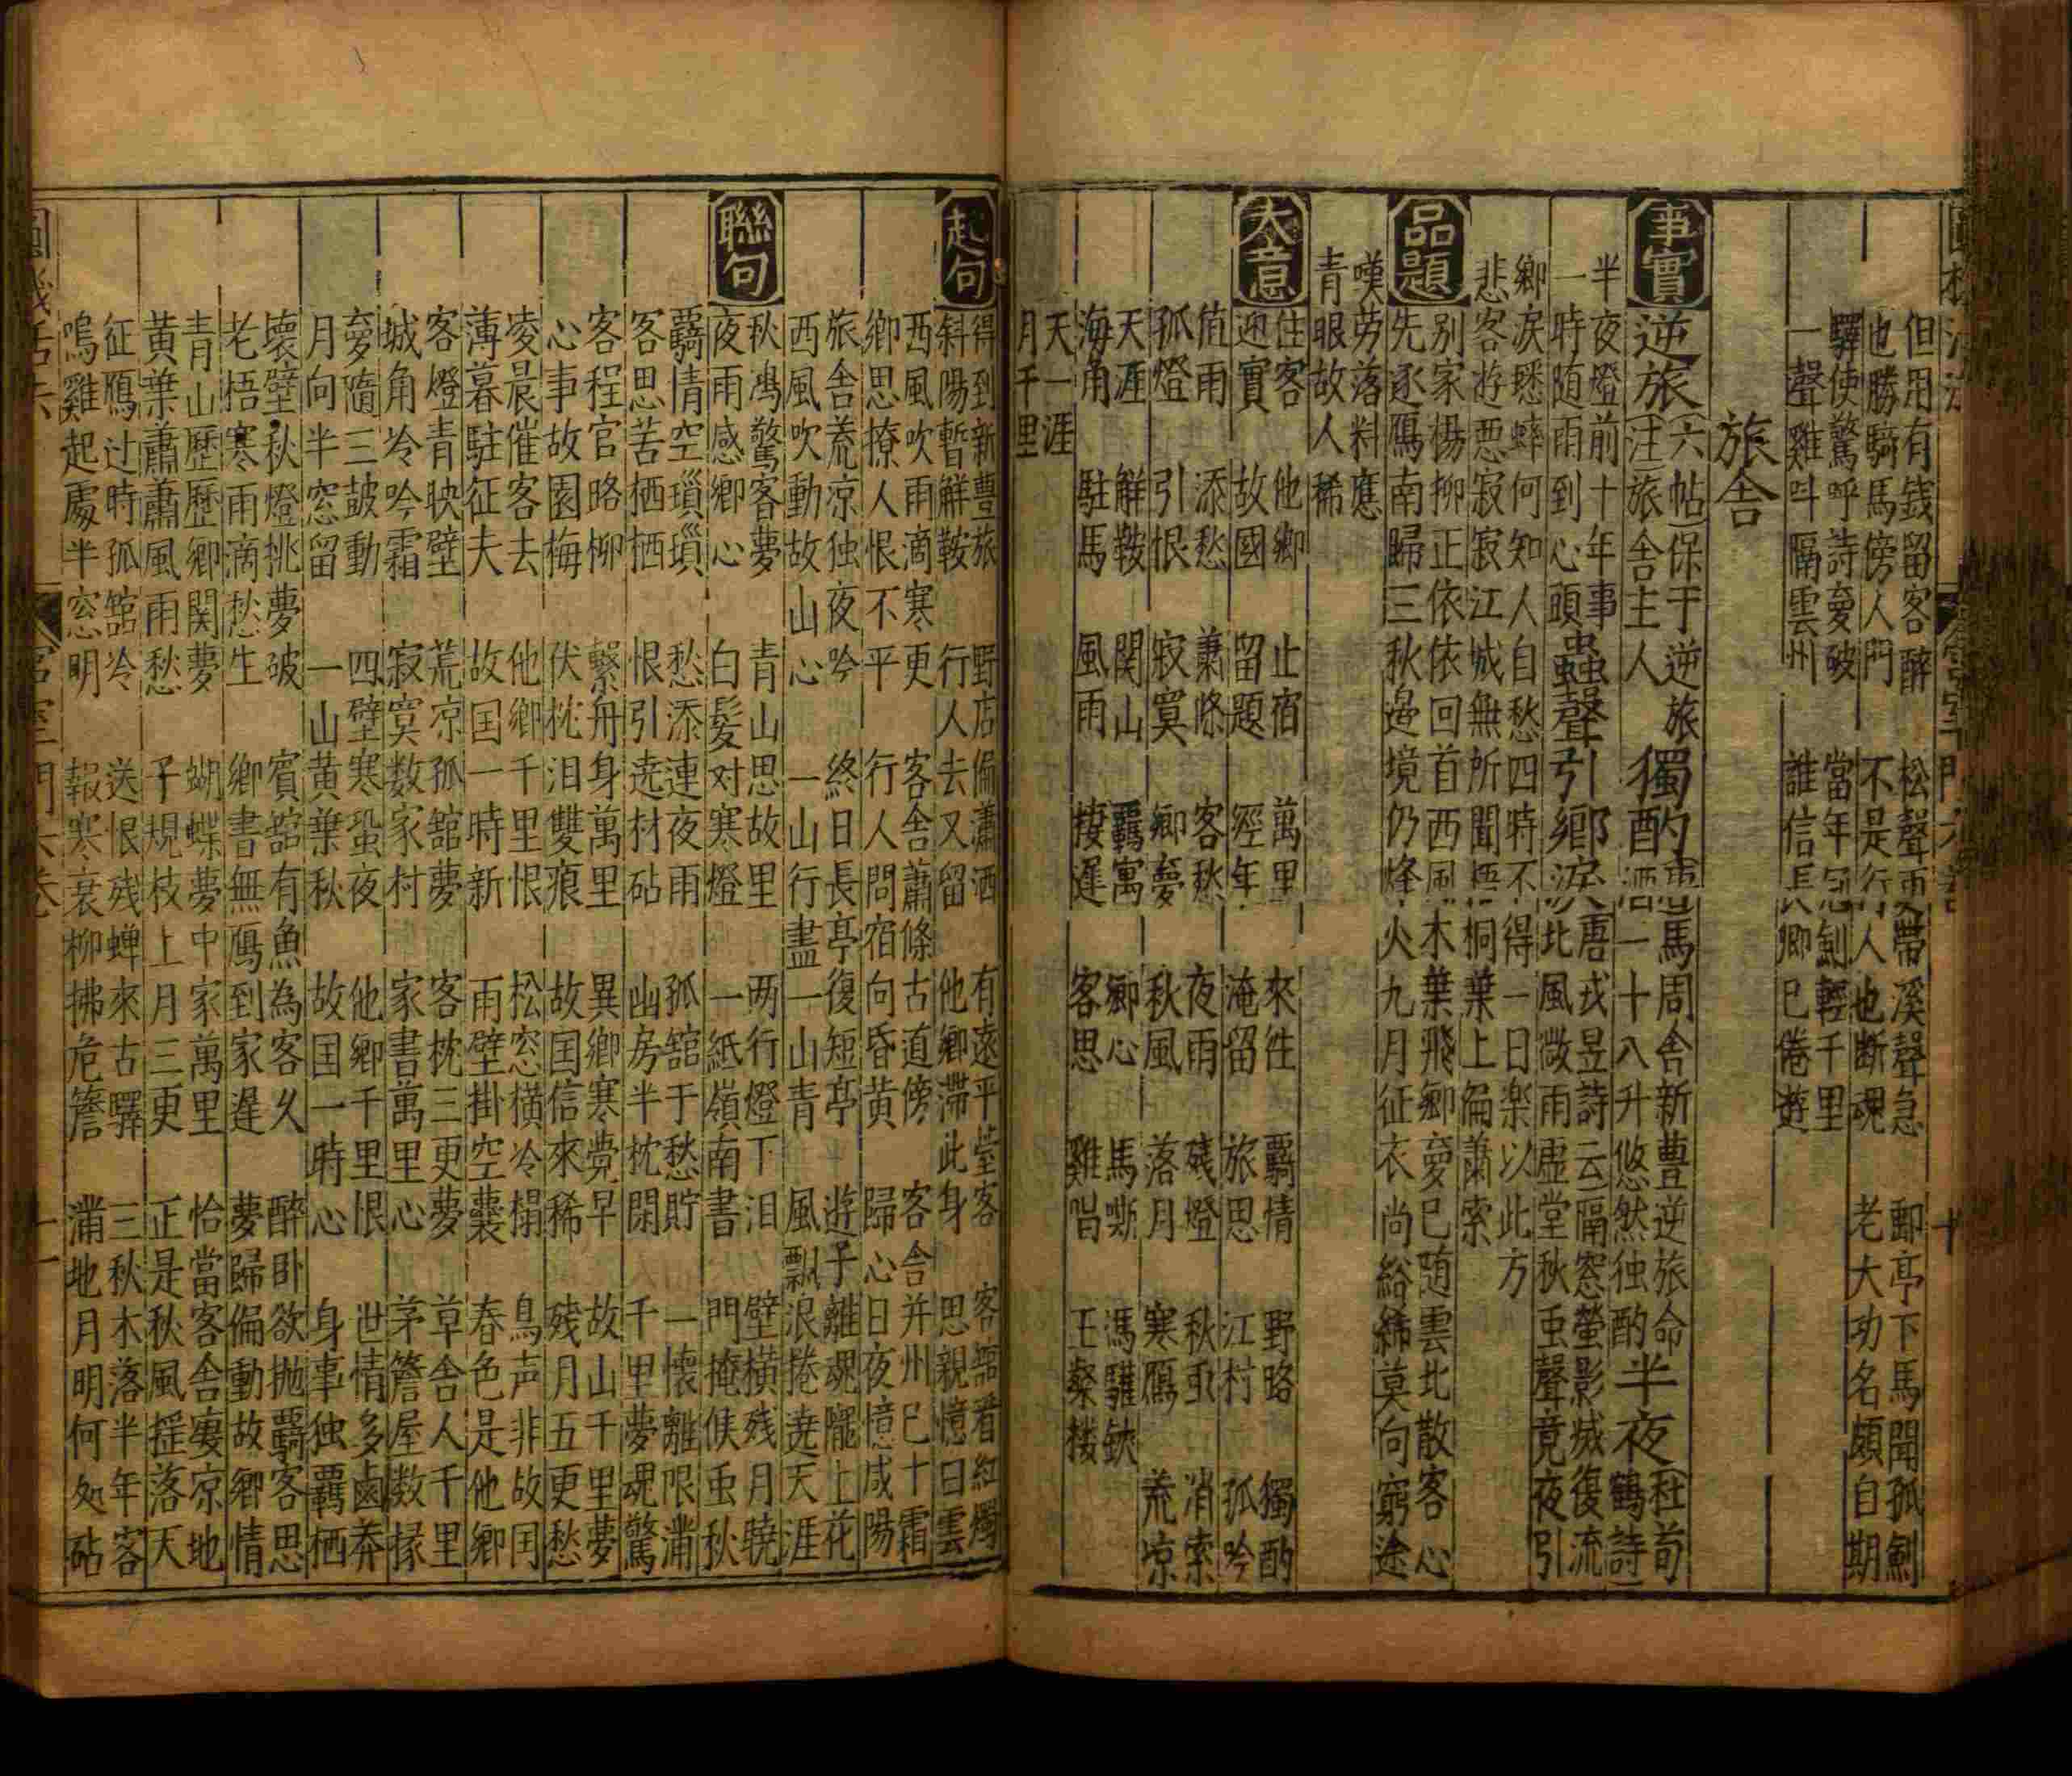 但用有錢留客醉 松聲更帶溪聲急 郵亭下馬聞孤劍
也勝騎馬傍人門 不是行人也断魂 老大功名頗自期
驛使驚呼詩夢破 當年冠劍輕千里
一聲雞叫隔雲州 誰信長卿已倦遊
旅舍
事實 逆旅 六帖保于逆旅
注旅舍主人 獨酌 唐馬周舍新豊逆旅命
酒一十八升悠然独酌 半夜 杜荀
鶴詩
半夜燈前十年事
一時随雨到心頭 蟲聲引鄉淚 唐戎昱詩云隔窓螢影滅復流
北風微雨虚堂秋虫聲竟夜引
鄉淚蟋蟀何知人自愁四時不得一日楽以此方
悲客游悪寂寂江城無所聞梧桐葉上偏蕭索
品題 别家楊柳正依依回首西風木葉飛鄉夢已随雲北散客心
先逐鴈南歸三秋邉境仍烽火九月征衣尚綌絺莫向窮途
嘆劳落料應
青眼故人稀
大意 住客 他鄉 止宿 萬里 來往 羇情 野略 獨酌
迎賓 故國 留題 經年 淹留 旅思 江村 孤吟
值雨 添愁 蕭條 客愁 夜雨 残燈 秋虫 消索
孤燈 引恨 寂寞 鄉夢 秋風 落月 寒鴈 荒凉
天涯 解鞍 関山 羇寓 鄉心 馬嘶 馮驩鋏
海角 駐馬 風雨 棲遲 客思 雞唱 王粲楼
天一涯
月千里
起句 得到新豊旅 野店偏瀟洒 有遠平莹客 客舘看紅燭
斜陽暫觧鞍 行人去又留 他鄉滞此身 思親憶白雲
西風吹雨滴寒更 客舍蕭條古道傍 客舍并州已十霜
鄉思撩人恨不平 行人問宿向昏黄 歸心日夜憶咸陽
旅舍荒凉独夜吟 終日長亭復短亭 遊子離魂隴上花
西風吹動故山心 一山行盡一山青 風飄浪捲遶天涯
聯句 秋鴻驚客夢 青山思故里 两行燈下泪 壁橫残月曉
夜雨感鄉心 白髪对寒燈 一紙嶺南書 門掩候虫秋
羇情空瑣瑣 愁添連夜雨 孤舘于愁貯 一懷離限滿
客思苦栖栖 恨引遶村砧 幽房半枕閑 千里夢魂驚
客程官路柳 繋舟身萬里 異鄉寒覺早 故山千里夢
心事故園梅 伏枕泪雙痕 故囯信來稀 残月五更愁
凌晨催客去 他鄉千里恨 松窓橫冷榻 鳥声非故囯
薄暮駐征夫 故囯一時新 雨壁掛空囊 春色是他鄉
客燈青映壁 荒凉孤舘夢 客枕三更夢 草舍人千里
城角冷吟霜 寂寞数家村 家書萬里心 茅簷屋数椽
夢隨三皷動 四壁寒蛩夜 他鄉千里恨 世情多鹵莽
月向半窓留 一山黄葉秋 故囯一時心 身事独羇栖
壊壁秋燈挑夢破 賓舘有魚為客久 醉卧欲抛羇客思
老梧寒雨滴愁生 鄉書無鴈到家遲 夢歸偏動故鄉情
青山歷歷鄉関夢 蝴蝶夢中家萬里 恰當客舍凄凉地
黄葉蕭蕭風雨愁 子規枝上月三更 正是秋風摇落天
征鴈过時孤舘冷 送恨残蝉來古驛 三秋木落半年客
鳴雞起處半窓明 報寒衰柳拂危簷 滿地月明何処砧